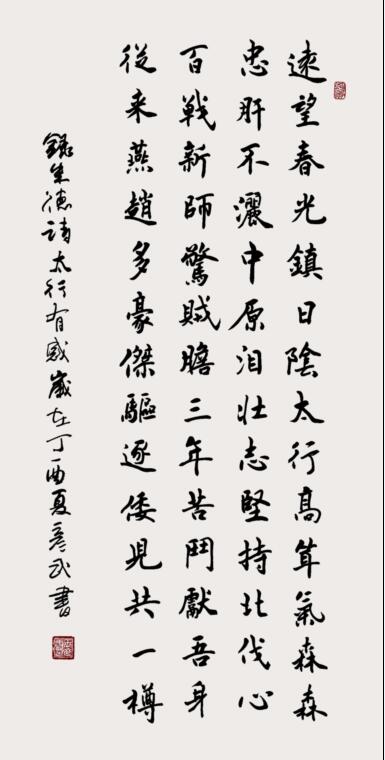 遠望春光鎮日陰太行高耸氣森森
忠肝不灑中原泪壯志堅持北伐心
百戰新師驚賊膽三年苦鬥獻吾身
從来燕趙多豪傑驅逐倭児共一樽
錄朱德詩太行有感歲在丁酉夏書